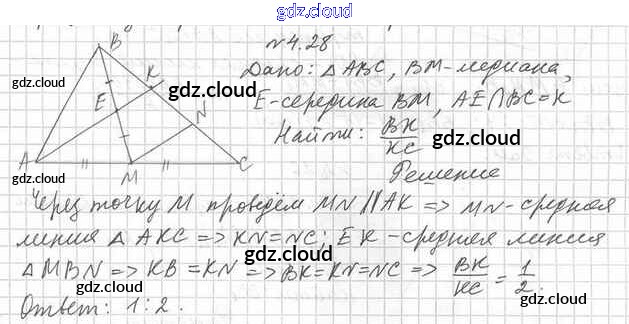 gdz.cloud
№4.28
B
gdz.cloud
Дано: △ABC, BM-медиана,
K
gdz.cloud
E
gdz.cloud
E-середина BM, AE∩BC=K
N
Найти: BK/KC
gdz.cloud
A
M
C
gdz.cloud
gdz.cloud
Решение
Через точку M проведём MN∥AK => MN-средняя
линия △AKC => KN=NC; EK-средняя линия
△MBN => KB=KN => BK=KN=NC => BK/KC = 1/2.
Ответ: 1:2.
gdz.cloud
gdz.cloud
gdz.cloud